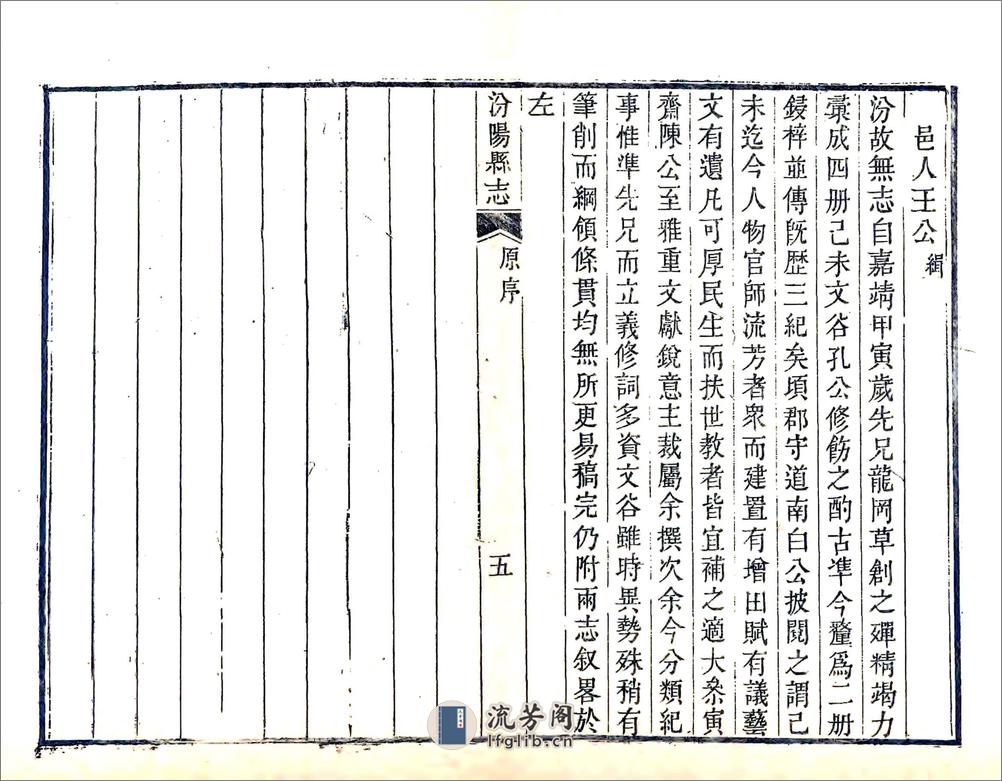 邑人王公緝
汾故無志自嘉靖甲寅歲先兄龍岡草創之殫精竭力
藁成四册己未文谷孔公修飭之酌古凖今釐爲二册
鋟梓並傳旣歴三紀矣頃郡守道南白公披閱之謂己
未迄今人物官師流芳者衆而建置有增田賦有議藝
文有遺凡可厚民生而扶世教者皆宜補之適大叅寅
齋陳公至雅重文獻銳意主裁屬余撰次余今分類紀
事惟準先兄而立義修詞多資文谷雖時異勢殊稍有
筆削而綱領條貫均無所更易稿完仍附兩志叙畧於
左
汾陽縣志
原序
五
流芳阁
lfglib.cn